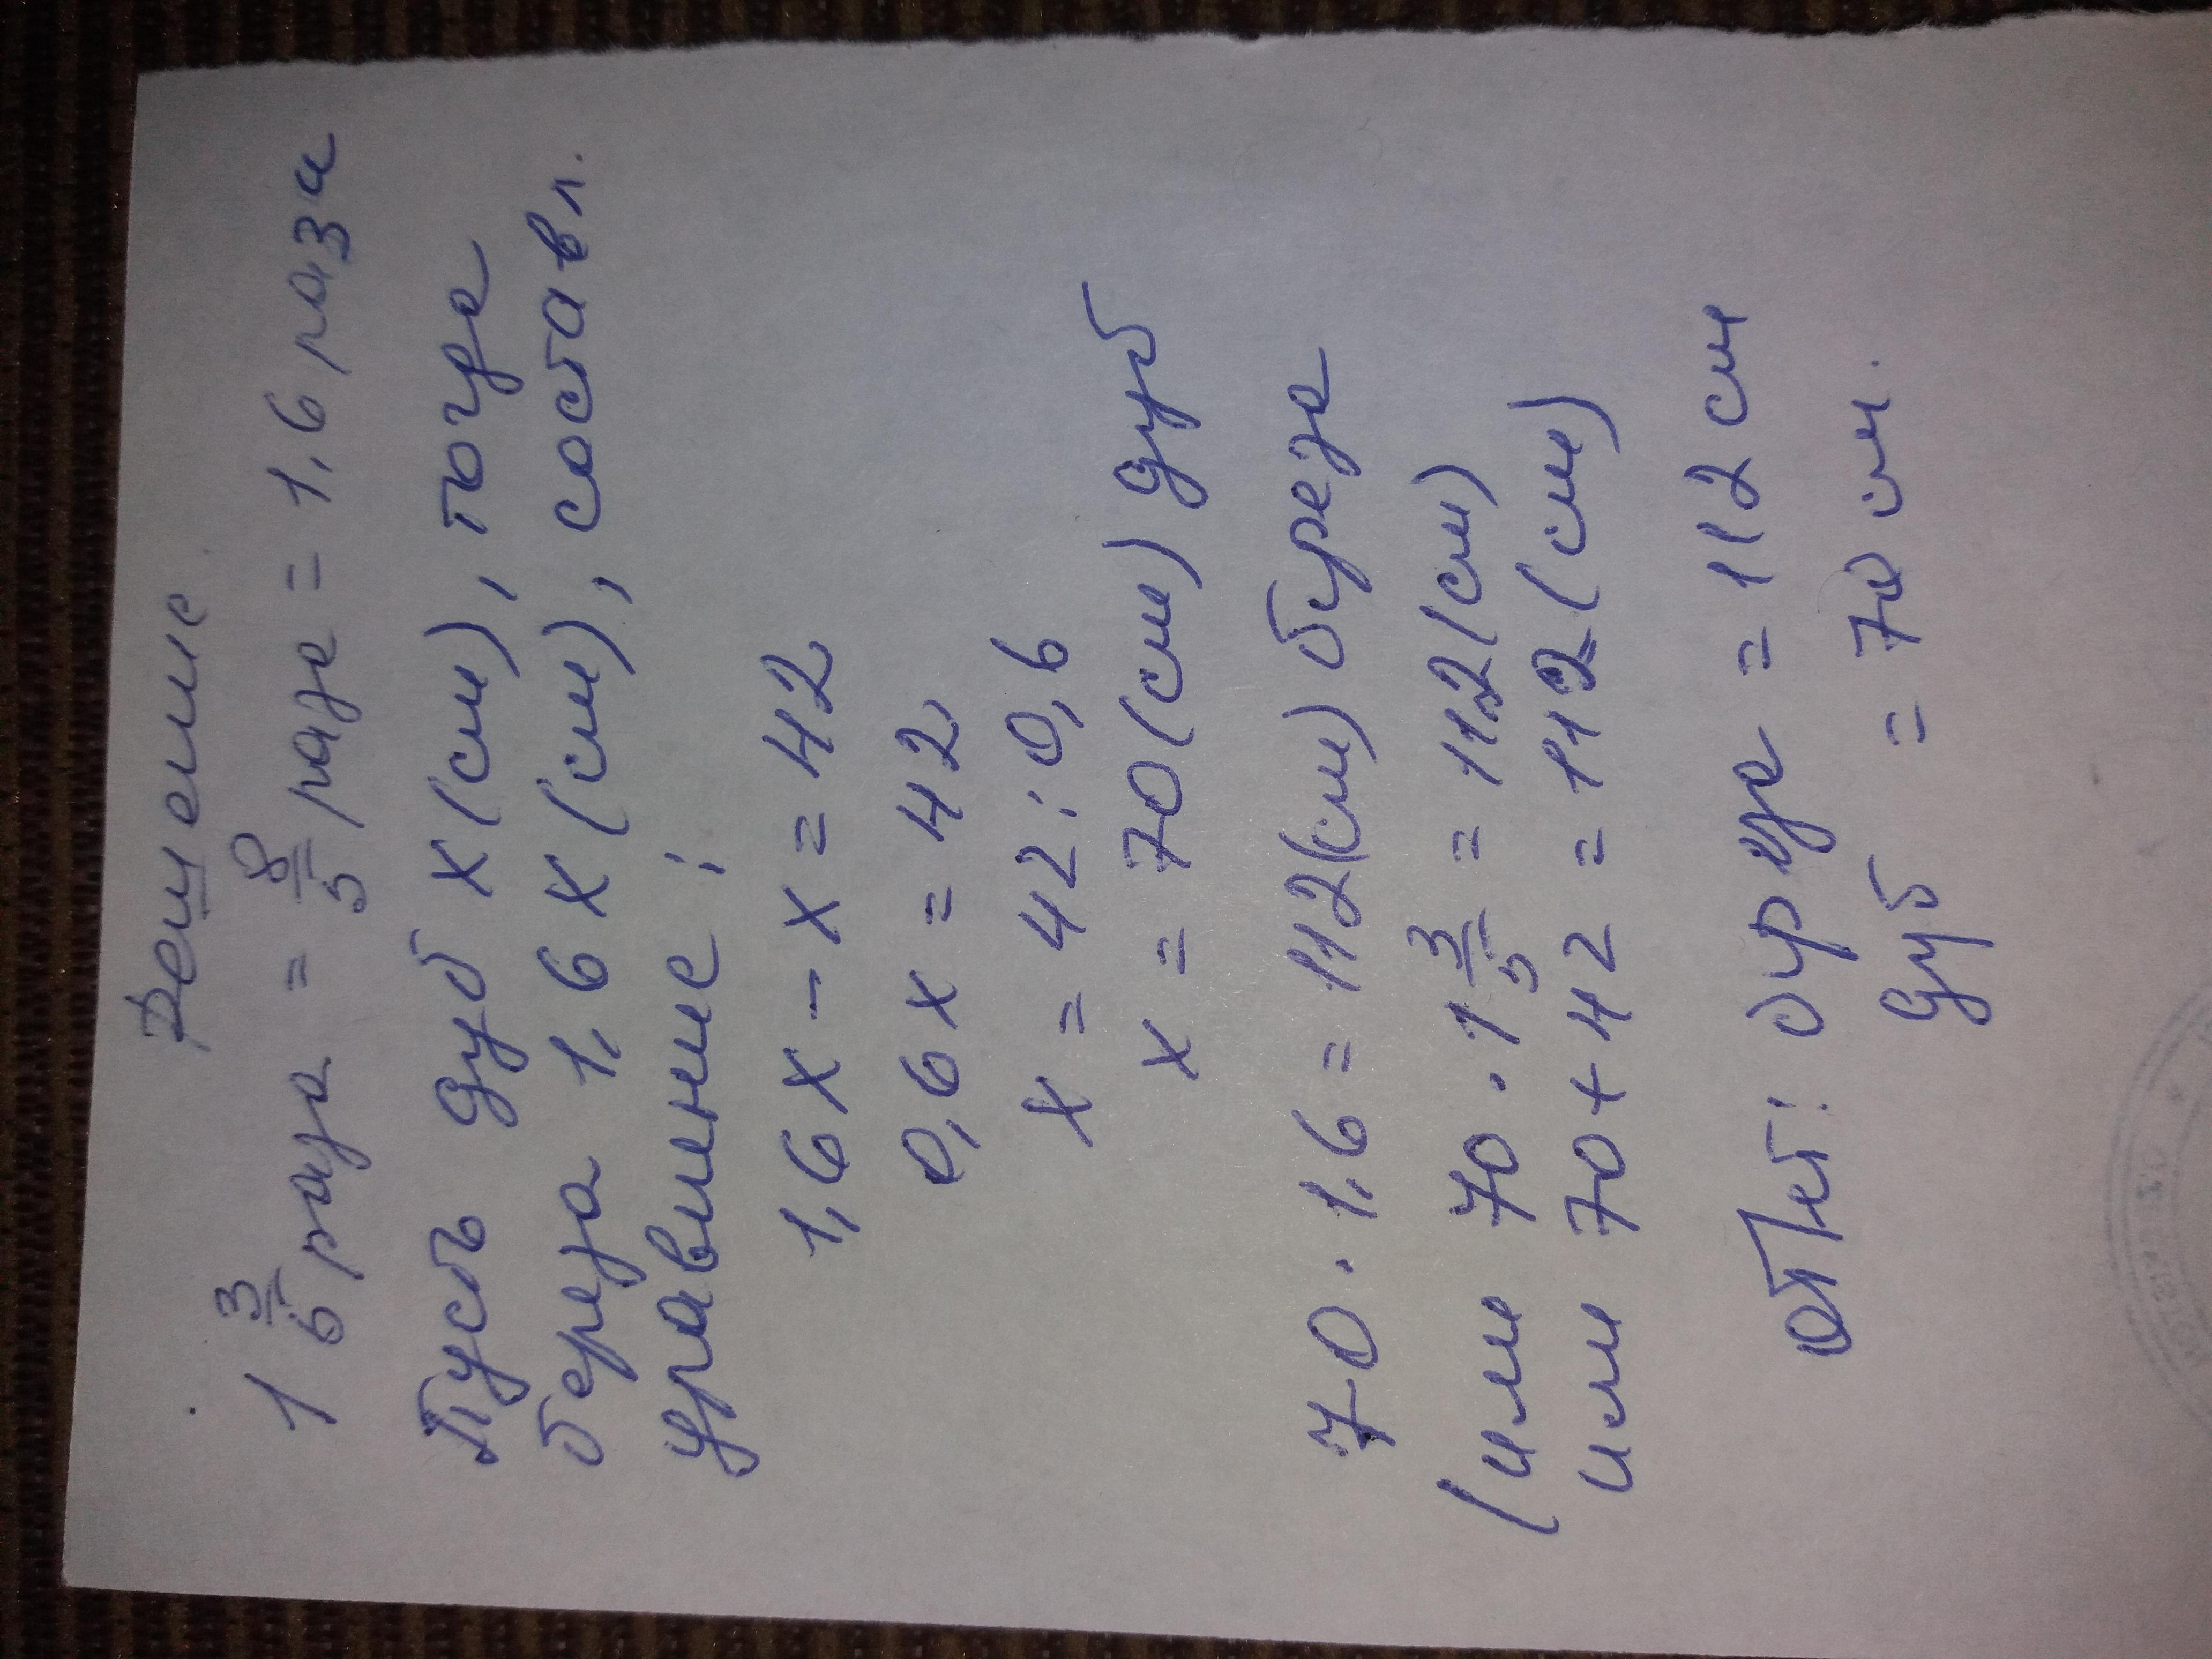 Решение
1 3/5 раза = 8/5 раза = 1,6 раза
Пусть дуб x (см), тогда
береза 1,6 x (см), составл.
уравнение:
1,6x - x = 42
0,6x = 42
x = 42 : 0,6
x = 70 (см) дуб
70 · 1,6 = 112 (см) береза
(или 70 · 1 3/5 = 112 (см)
или 70 + 42 = 112 (см)
= 112 см
дуб = 70 см.